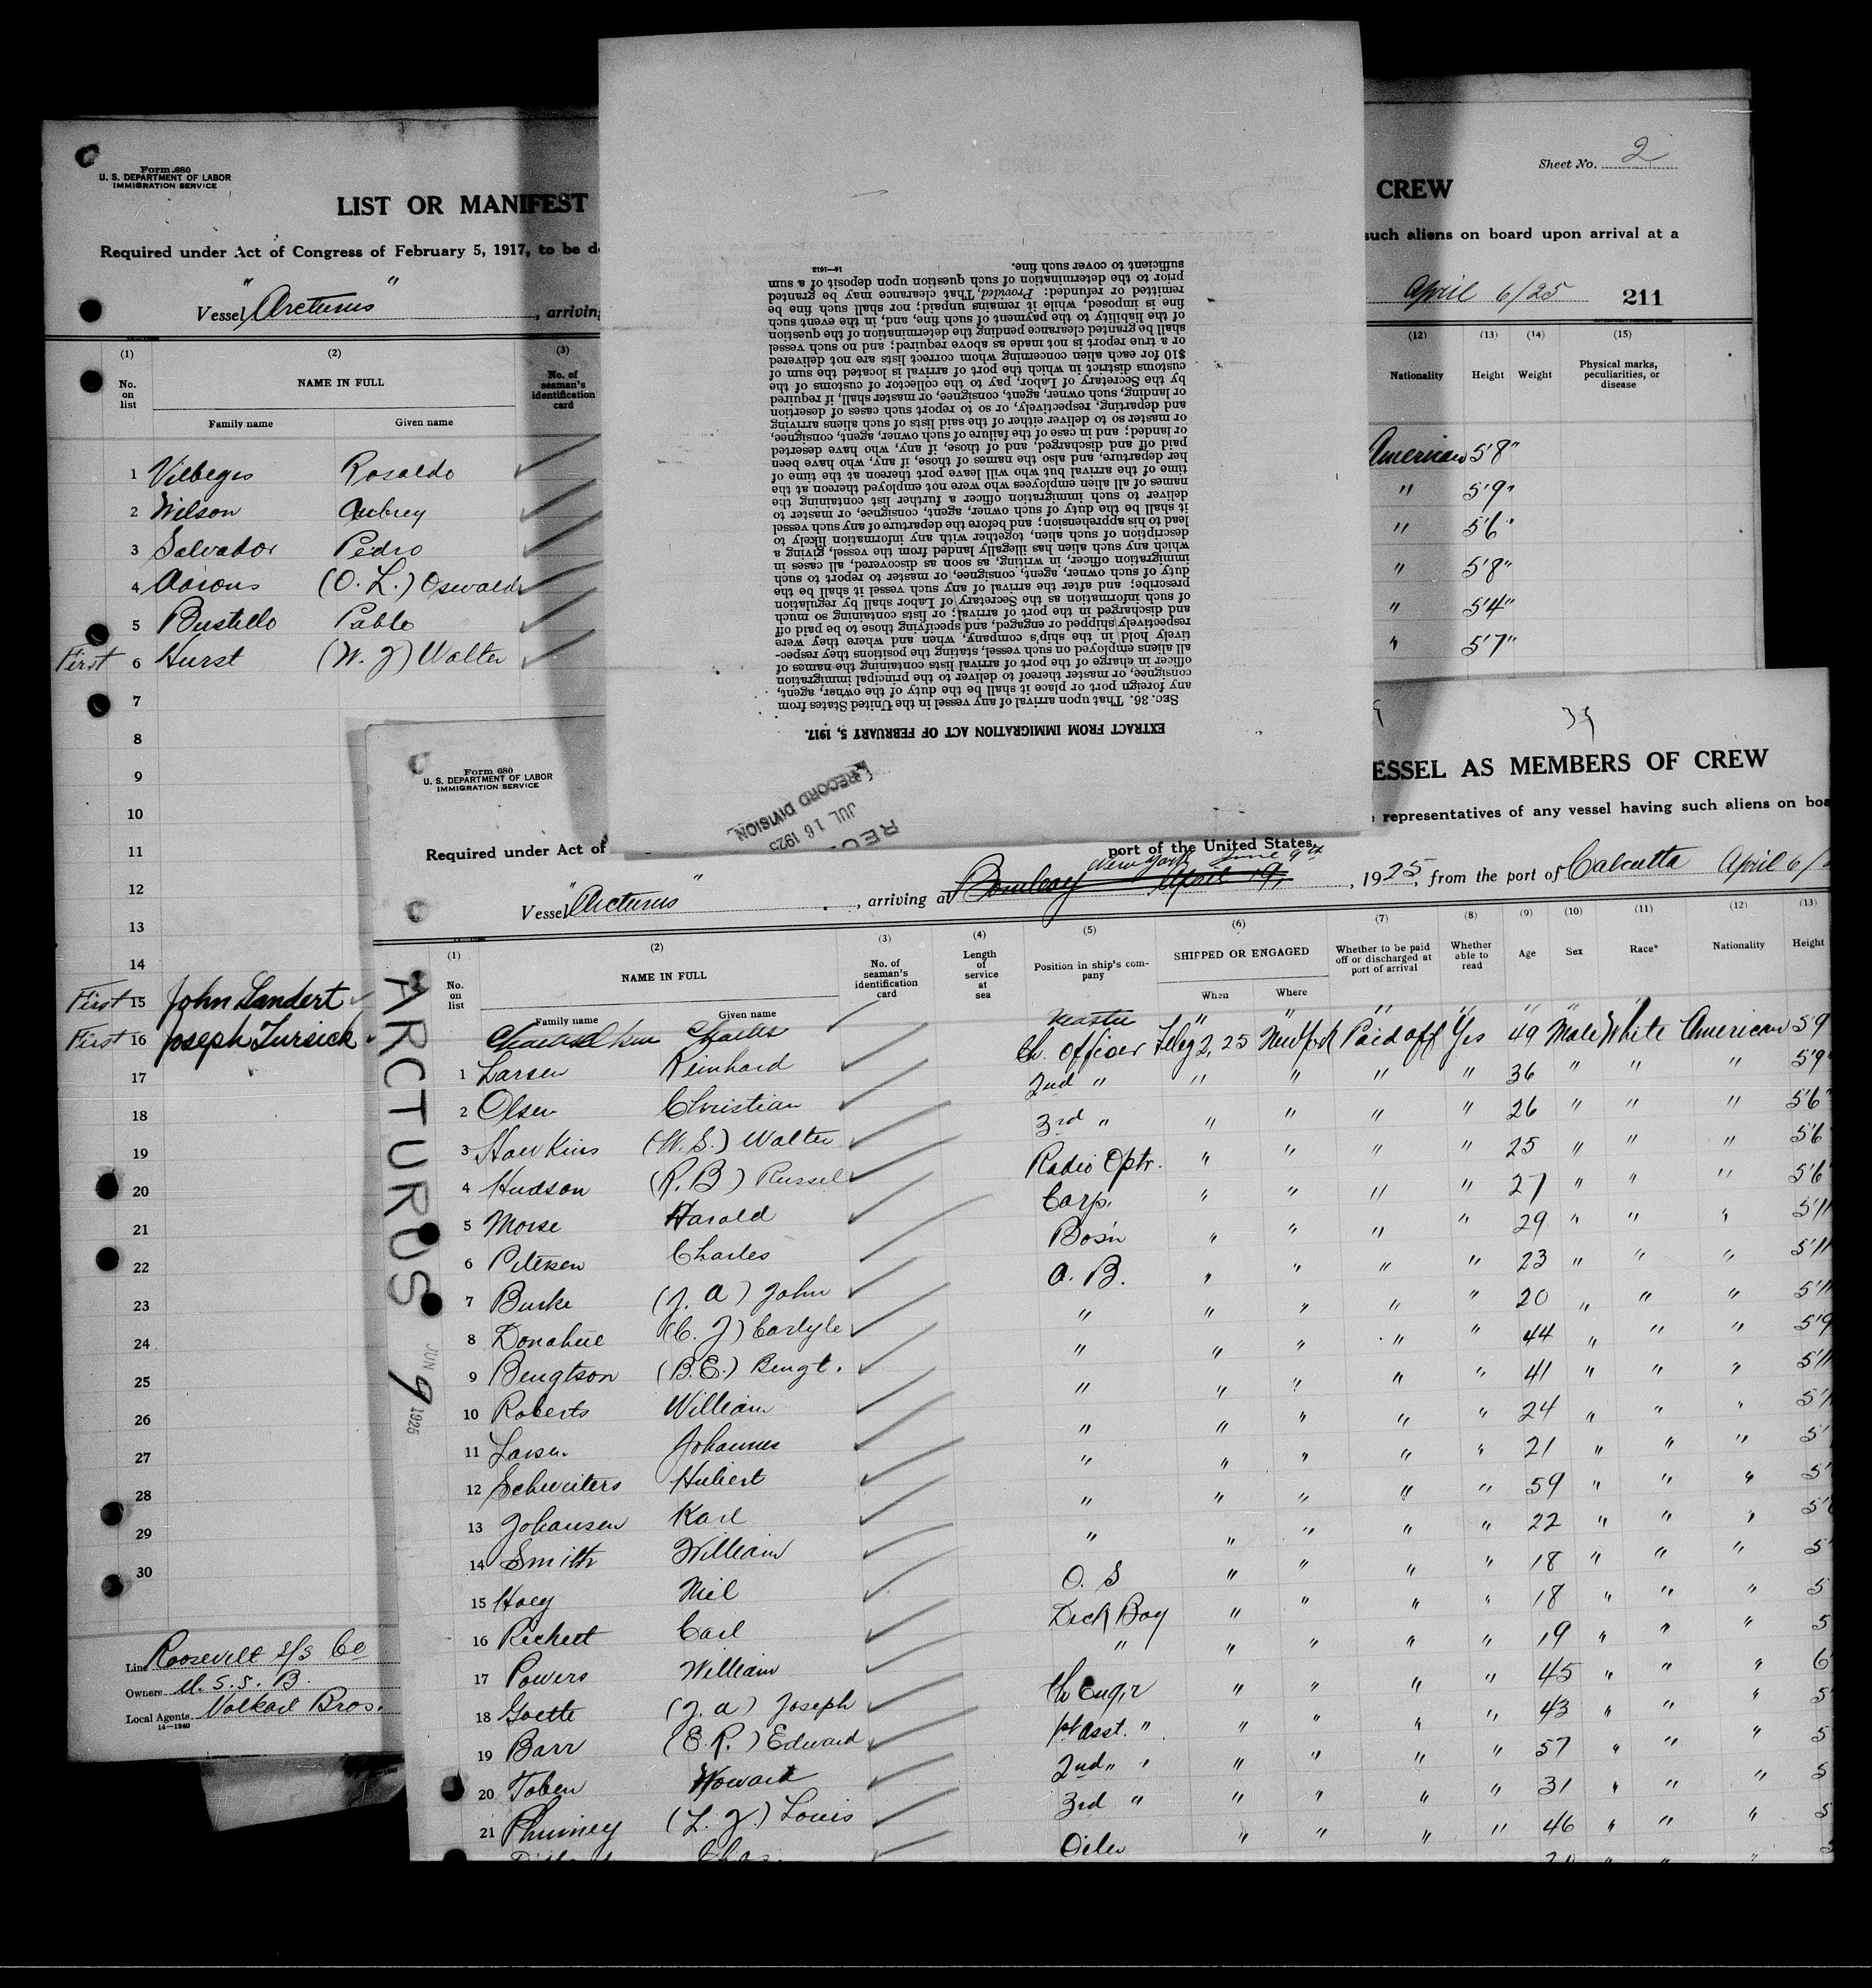 Form 680
U. S. DEPARTMENT OF LABOR
IMMIGRATION SERVICE
LIST OR MANIFEST
Required under Act of Congress of February 5, 1917, to be d
Vessel "Arcturus", arriving
(1) (2) (3)
No. on list NAME IN FULL No. of seaman's identification card
Family name Given name
1 Rosaldo
2 Wilson Aubrey
3 Salvador Pedro
4 Aarons (O. L.) Oswald
5 Bustillo Pablo
First 6 Hurst (W. J) Walter
7
8
9
10
11
12
13
14
First 15 John Landert
First 16 Joseph Tursick
17
18
19
20
21
22
23
24
25
26
27
28
29
30
Line Roosevelt S/S Co
Owners U. S. S. B.
Local Agents Volkart Bros.
14—1240
Sheet No. 2
CREW
such aliens on board upon arrival at a
April 6/25 211
(12) (13) (14) (15)
Nationality Height Weight Physical marks, peculiarities, or disease
American 5'8"
" 5'9"
" 5'6"
" 5'8"
" 5'4"
" 5'7"
EXTRACT FROM IMMIGRATION ACT OF FEBRUARY 5, 1917.
SEC. 36. That upon arrival of any vessel in the United States from
any foreign port or place it shall be the duty of the owner, agent,
consignee, or master thereof to deliver to the principal immigration
officer in charge of the port of arrival lists containing the names of
all aliens employed on such vessel, stating the positions they respec-
tively hold in the ship's company, when and where they were
respectively shipped or engaged, and specifying those to be paid off
and discharged in the port of arrival; or lists containing so much
of such information as the Secretary of Labor shall by regulation
prescribe; and after the arrival of any such vessel it shall be the
duty of such owner, agent, consignee, or master to report to such
immigration officer, in writing, as soon as discovered, all cases in
which any such alien has illegally landed from the vessel, giving a
description of such alien, together with any information likely to
lead to his apprehension; and before the departure of any such vessel
it shall be the duty of such owner, agent, consignee, or master to
deliver to such immigration officer a further list containing the
names of all alien employees who were not employed thereon at the
time of the arrival but who will leave port thereon at the time of
her departure, and also the names of those, if any, who have been
paid off and discharged, and of those, if any, who have deserted
or landed; and in case of the failure of such owner, agent, consignee,
or master so to deliver either of the said lists of such aliens arriving
and departing, respectively, or so to report such cases of desertion
or landing, such owner, agent, consignee, or master shall, if required
by the Secretary of Labor, pay to the collector of customs of the
customs district in which the port of arrival is located the sum of
$10 for each alien concerning whom correct lists are not delivered
or a true report is not made as above required; and no such vessel
shall be granted clearance pending the determination of the question
of the liability to the payment of such fine, and, in the event such
fine is imposed, while it remains unpaid; nor shall such fine be
remitted or refunded: Provided, That clearance may be granted
prior to the determination of such question upon deposit of a sum
sufficient to cover such fine.
REC
JUL 16 1925
RECORD DIVISION
39
Form 680
U. S. DEPARTMENT OF LABOR
IMMIGRATION SERVICE
ESSEL AS MEMBERS OF CREW
representatives of any vessel having such aliens on boa
Required under Act of
port of the United States
Vessel "Arcturus", arriving at Bombay April 19, New York June 9th, 1925, from the port of Calcutta April 6/
(1) (2) (3) (4) (5) (6) (7) (8) (9) (10) (11) (12) (13)
No. on list NAME IN FULL No. of seaman's identification card Length of service at sea Position in ship's company SHIPPED OR ENGAGED Whether to be paid off or discharged at port of arrival Whether able to read Age Sex Race* Nationality Height
Family name Given name When Where
Charles Master " " " " " " " "
1 Larsen Reinhard Ch. Officer Feby 2, 25 New York Paid off Yes 49 Male White American 5'9
2 Olsen Christian 2nd " " " " " 36 " " " 5'9"
3 Hawkins (W. S.) Walter 3rd " " " " " 26 " " " 5'6"
4 Hudson (R. B) Russel Radio Optr. " " " " 25 " " " 5'6
5 Morse Harold Carp. " " " " 27 " " " 5'6
6 Petersen Charles Bosn " " " " 29 " " " 5'11
7 Burke (J. A) John A. B. " " " " 23 " " " 5'11
8 Donahue (C. J) Carlyle " " " " " 20 " " " 5'11
9 Bengtson (B. E.) Bengt. " " " " " 44 " " " 5'9
10 Roberts William " " " " " 41 " " " 5'11
11 Larsen Johannes " " " " " 24 " " " 5'11
12 Schwiters Hubert " " " " " 21 " " " 5'
13 Johansen Karl " " " " " 59 " " " 5'
14 Smith William " " " " " 22 " " " 5'
15 Hoey Niel O. S " " " " 18 " " " 5
16 Reckett Carl Deck Boy " " " " 18 " " " 5
17 Powers William " " " " " 19 " " " 5
18 Goette (J. A) Joseph Ch Engr " " " " 45 " " " 6
19 Barr (E. R.) Edward 1st Asst. " " " " " 43 " " " 5
20 Toben Howard 2nd " " " " " " 57 " " " 5
21 Phinney (L. J.) Louis 3rd " " " " " 31 " " " 5
Chas. Oiler " " " " 46 " " " 5
ARCTURUS
JUN 9 1925